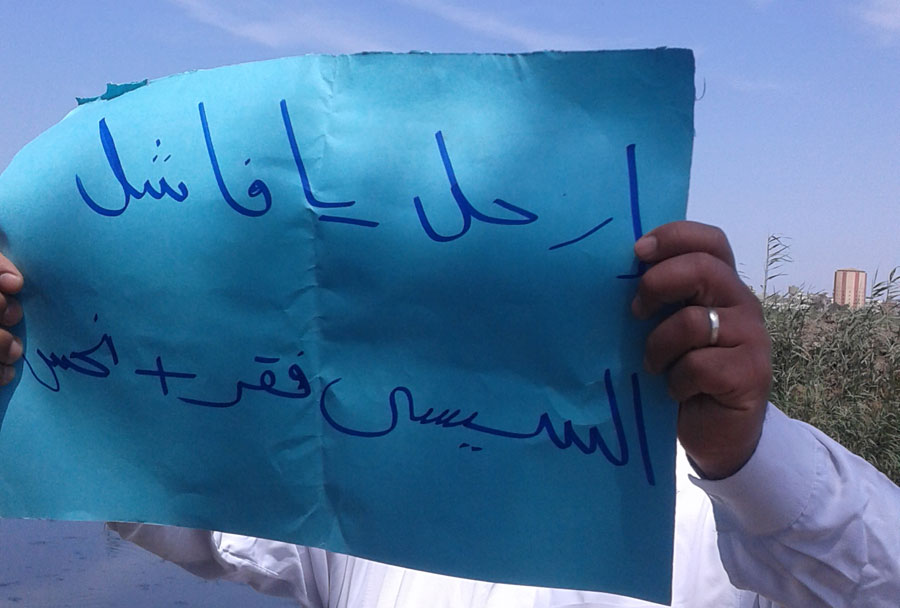 ارحل يا فاشل
السيسى فقر +